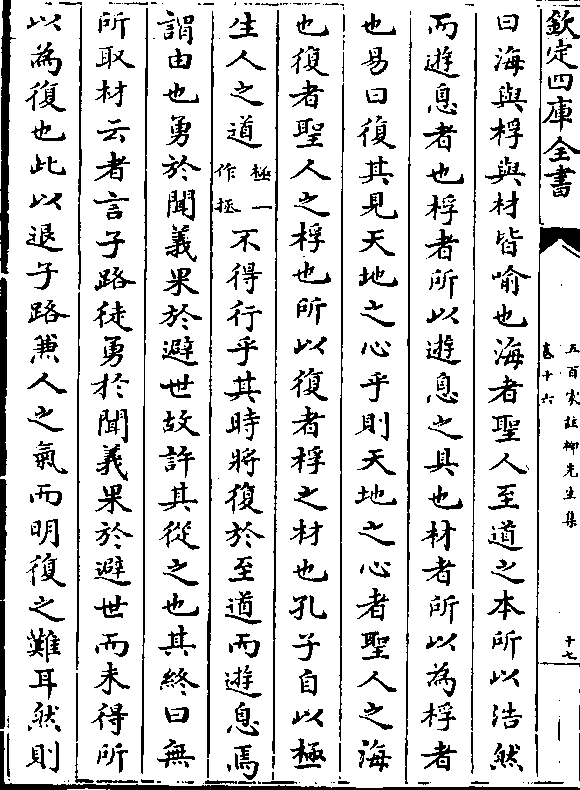 欽定四庫全書
五百家註柳先生集
卷十六
十七
曰海與桴與材皆喻也海者聖人至道之本所以浩然
而遊息者也桴者所以遊息之具也材者所以為桴者
也易曰復其見天地之心乎則天地之心者聖人之海
也復者聖人之桴也所以復者桴之材也孔子自以極
生人之道極一作拯不得行乎其時將復於至道而遊息焉
謂由也勇於聞義果於避世故許其從之也其終曰無
所取材云者言子路徒勇於聞義果於避世而未得所
以為復也此以退子路兼人之氣而明復之難耳然則